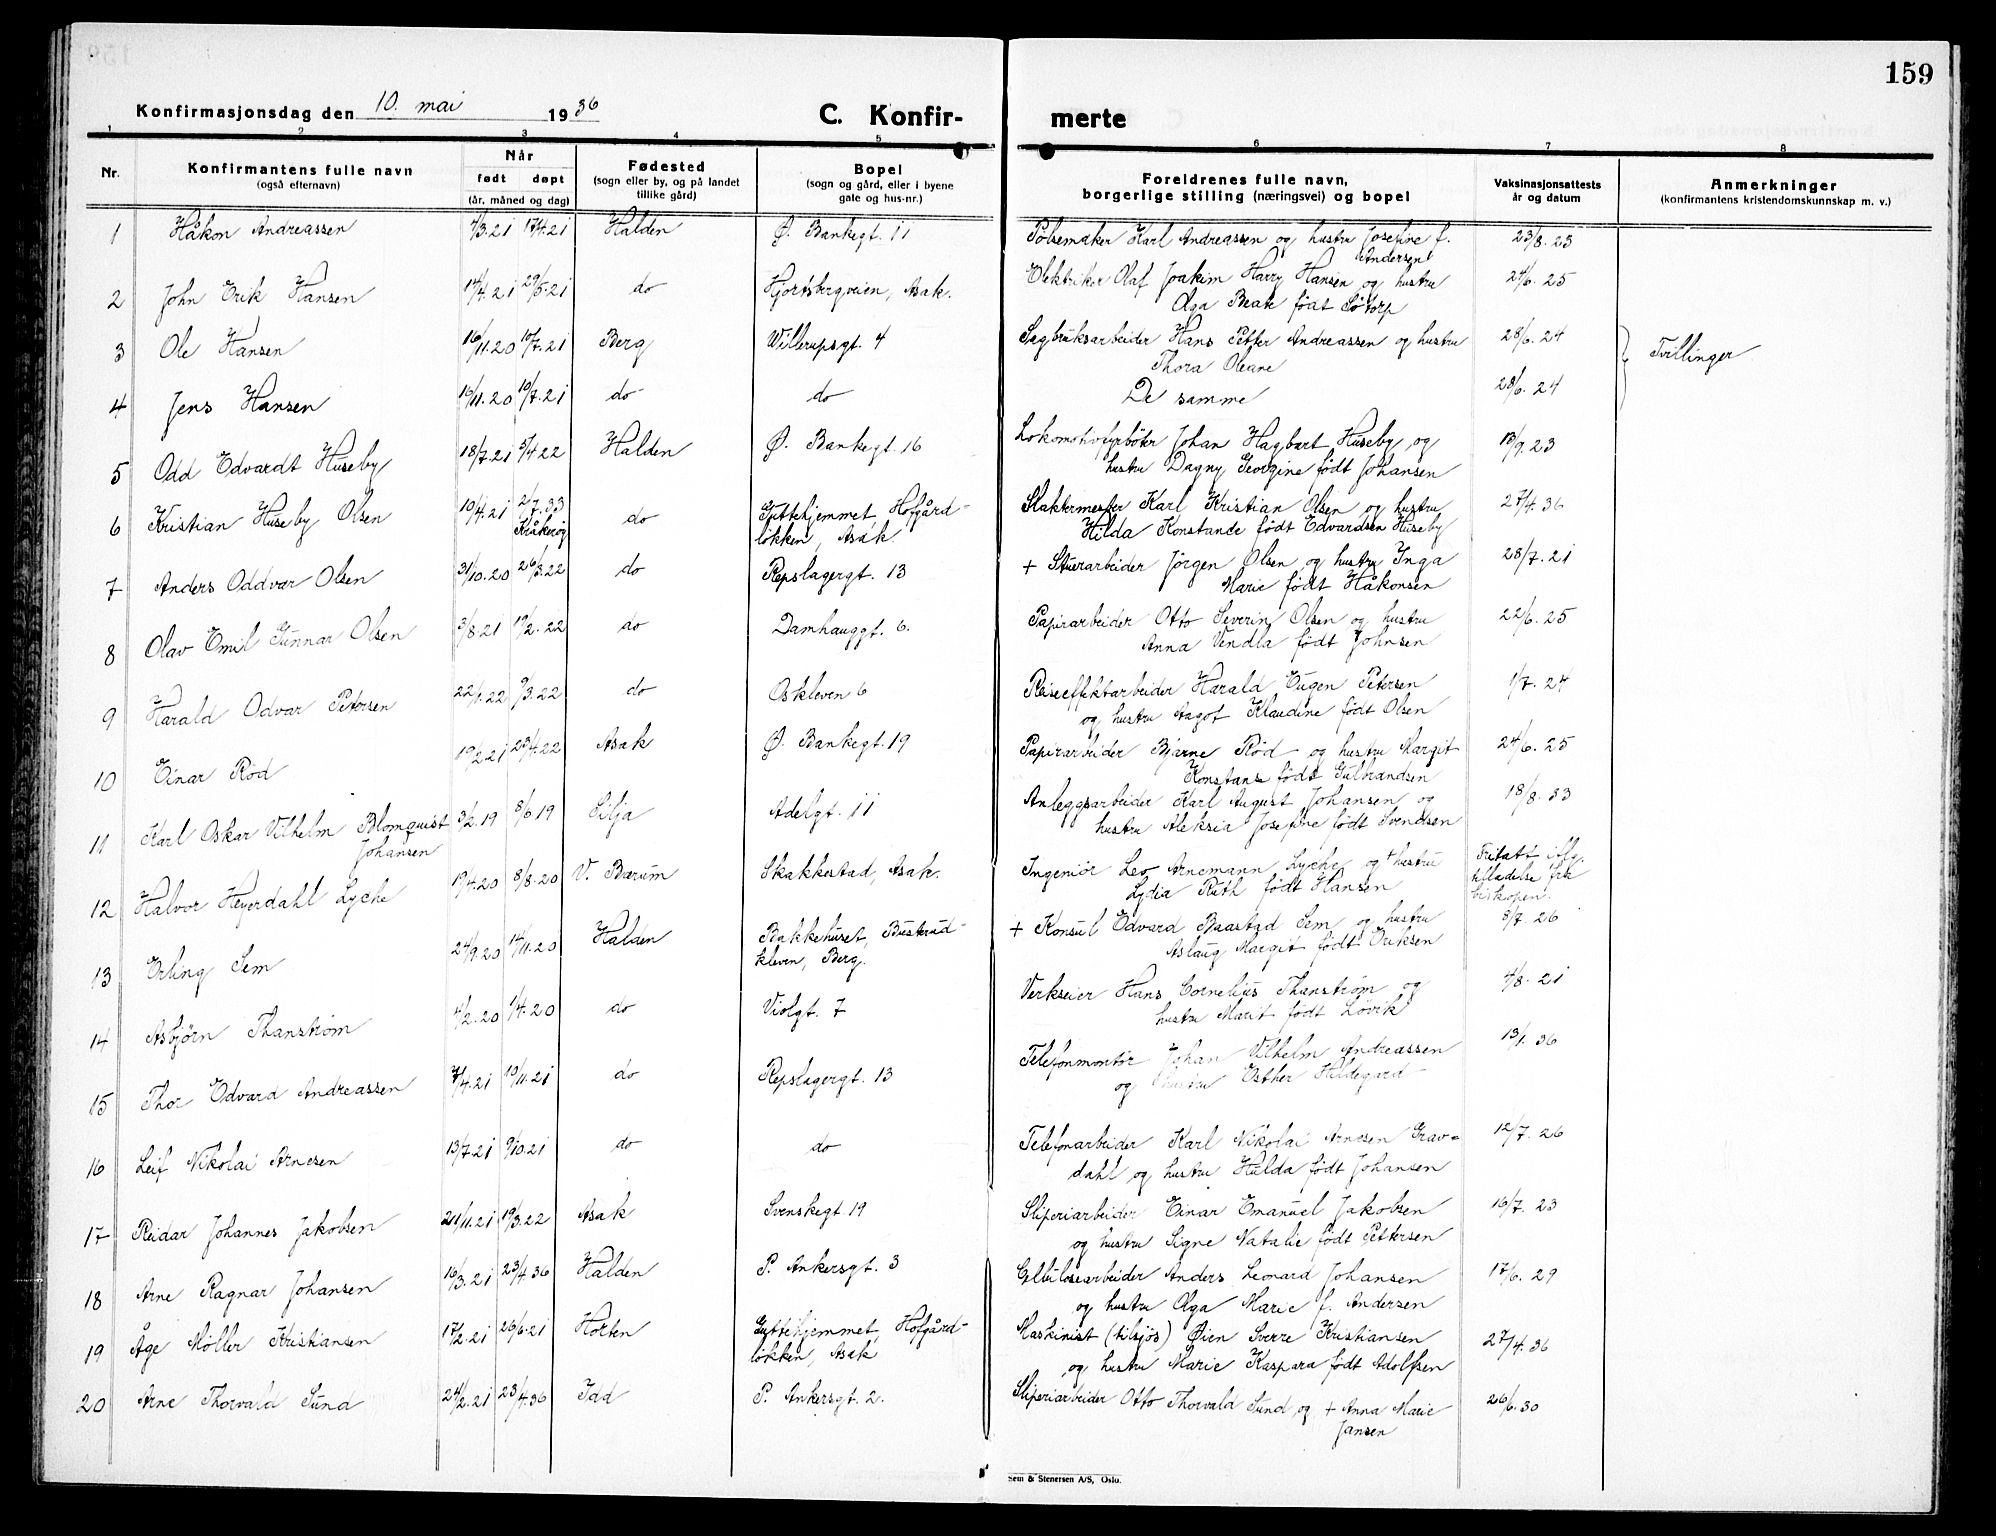 159
Konfirmasjonsdag den 10. mai 1936
C. Konfir- merte
1 2 3 4 5 6 7 8
Nr.
Konfirmantens fulle navn
(også efternavn)
Når
født døpt
(år, måned og dag)
Fødested
(sogn eller by, og på landet
tillike gård)
Bopel
(sogn og gård, eller i byene
gate og hus-nr.)
Foreldrenes fulle navn,
borgerlige stilling (næringsvei) og bopel
Vaksinasjonsattests
år og datum
Anmerkninger
(konfirmantens kristendomskunnskap m. v.)
1 Håkon Andreassen 17/4.21 Halden Ø. Bankegt. 11 Pølsemaker Karl Andreassen og hustru Josefine f. 23/8.23
Andersen
2 John Erik Hansen 14/4.21 29/5.21 do Hjortsbergveien, Asak. Elektriker Olaf Joakim Harry Hansen og hustru 24/6.25
Olga Beate født Sötorp
3 Ole Hansen 16/11.20 10/7.21 Berg Willerupsgt. 4 Sagbruksarbeider Hans Petter Andreassen og hustru 28/6.24 Tvillinger
Thora Oleane
4 Jens Hansen 16/11.20 10/7.21 do do De samme 28/6.24
5 Odd Edvardt Huseby 18/7.21 5/4.22 Halden Ø. Bankegt. 16 Lokomotivfyrbøter Johan Hagbart Huseby og 18/9.23
hustru Dagny Georgine født Johansen
6 Kristian Huseby Olsen 10/4.21 2/7.33 do Guttehjemmet, Hofgård- Slaktermester Karl Kristian Olsen og hustru 27/4.36
Kråkerøy løkken, Asak. Hilda Konstande født Edvardsen Huseby
7 Anders Oddvar Olsen 31/10.20 26/3.22 do Repslagergt. 13 + Stuerarbeider Jörgen Olsen og hustru Inga 28/7.21
Marie født Håkonsen
8 Olav Emil Gunnar Olsen 3/8.21 19/2.22 do Damhauggt. 6. Papirarbeider Otto Severin Olsen og hustru 22/6.25
Anna Vendla født Johnsen
9 Harald Odvar Petersen 22/1.22 9/3.22 do Oskleven 6 Reiseeffektarbeider Harald Eugen Petersen 1/7.24
og hustru Aagot Klaudine født Olsen
10 Einar Röd 19/2.21 23/4.22 Asak Ø. Bankegt. 19 Papirarbeider Bjarne Röd og hustru Margit 24/6.25
Konstanse født Gulbrandsen
11 Karl Oskar Vilhelm Blomquist 3/2.19 8/6.19 Silja Adelgt. 11 Anleggsarbeider Karl August Johansen og 18/8.33
Johansen hustru Aleksia Josefine født Svendsen
12 Halvor Heyerdahl Lyche 19/4.20 8/8.20 V. Bærum Skakkestad, Asak. Ingeniör Leo Arnemann Lyche og + hustru Fritatt iflg.
Lydia Ruth født Hansen tilladelse fra
biskopen.
13 Erling Sem 24/9.20 14/11.20 Halden Bakkehuset, Buskrud- + Konsul Edvard Baastad Sem og hustru 8/7.26
kleven, Berg. Aslaug Margit født Eriksen
14 Asbjörn Thanström 1/4.20 do Violgt. 7 Verkseier Hans Cornelius Thanström og 4/8.21
hustru Marit født Lövik
15 Thor Edvard Andreassen 10/11.21 do Repslagergt. 13 Telefonmontör Johan Vilhelm Andreassen 13/1.36
og hustru Esther Hildegard
16 Leif Nikolai Arnesen 13/7.21 9/10.21 do do Telefonarbeider Karl Nikolai Arnesen Grav- 12/7.26
dahl og hustru Hulda født Johansen
17 Reidar Johannes Jakobsen 21/11.21 19/3.22 Asak Svenskegt. 19 Sliperiarbeider Einar Emanuel Jakobsen 16/7.23
og hustru Signe Natalie født Pettersen
18 Arne Ragnar Johansen 16/3.21 23/4.36 Halden P. Ankersgt. 3 Cellulosearbeider Anders Leonard Johansen 17/6.29
og hustru Olga Marie f. Andersen
19 Åge Möller Kristiansen 17/2.21 26/6.21 Horten Guttehjemmet, Hofgård- Maskinist (tilsjös) Øien Sverre Kristiansen 27/4.36
løkken, Asak og hustru Marie Kaspara født Adolfsen
20 Arne Thorvald Sund 24/2.21 23/4.36 Idd P. Ankersgt. 2. Sliperiarbeider Otto Thorvald Sund og + Anna Marie 26/6.30
Jansen
Sem & Stenersen A/S, Oslo.